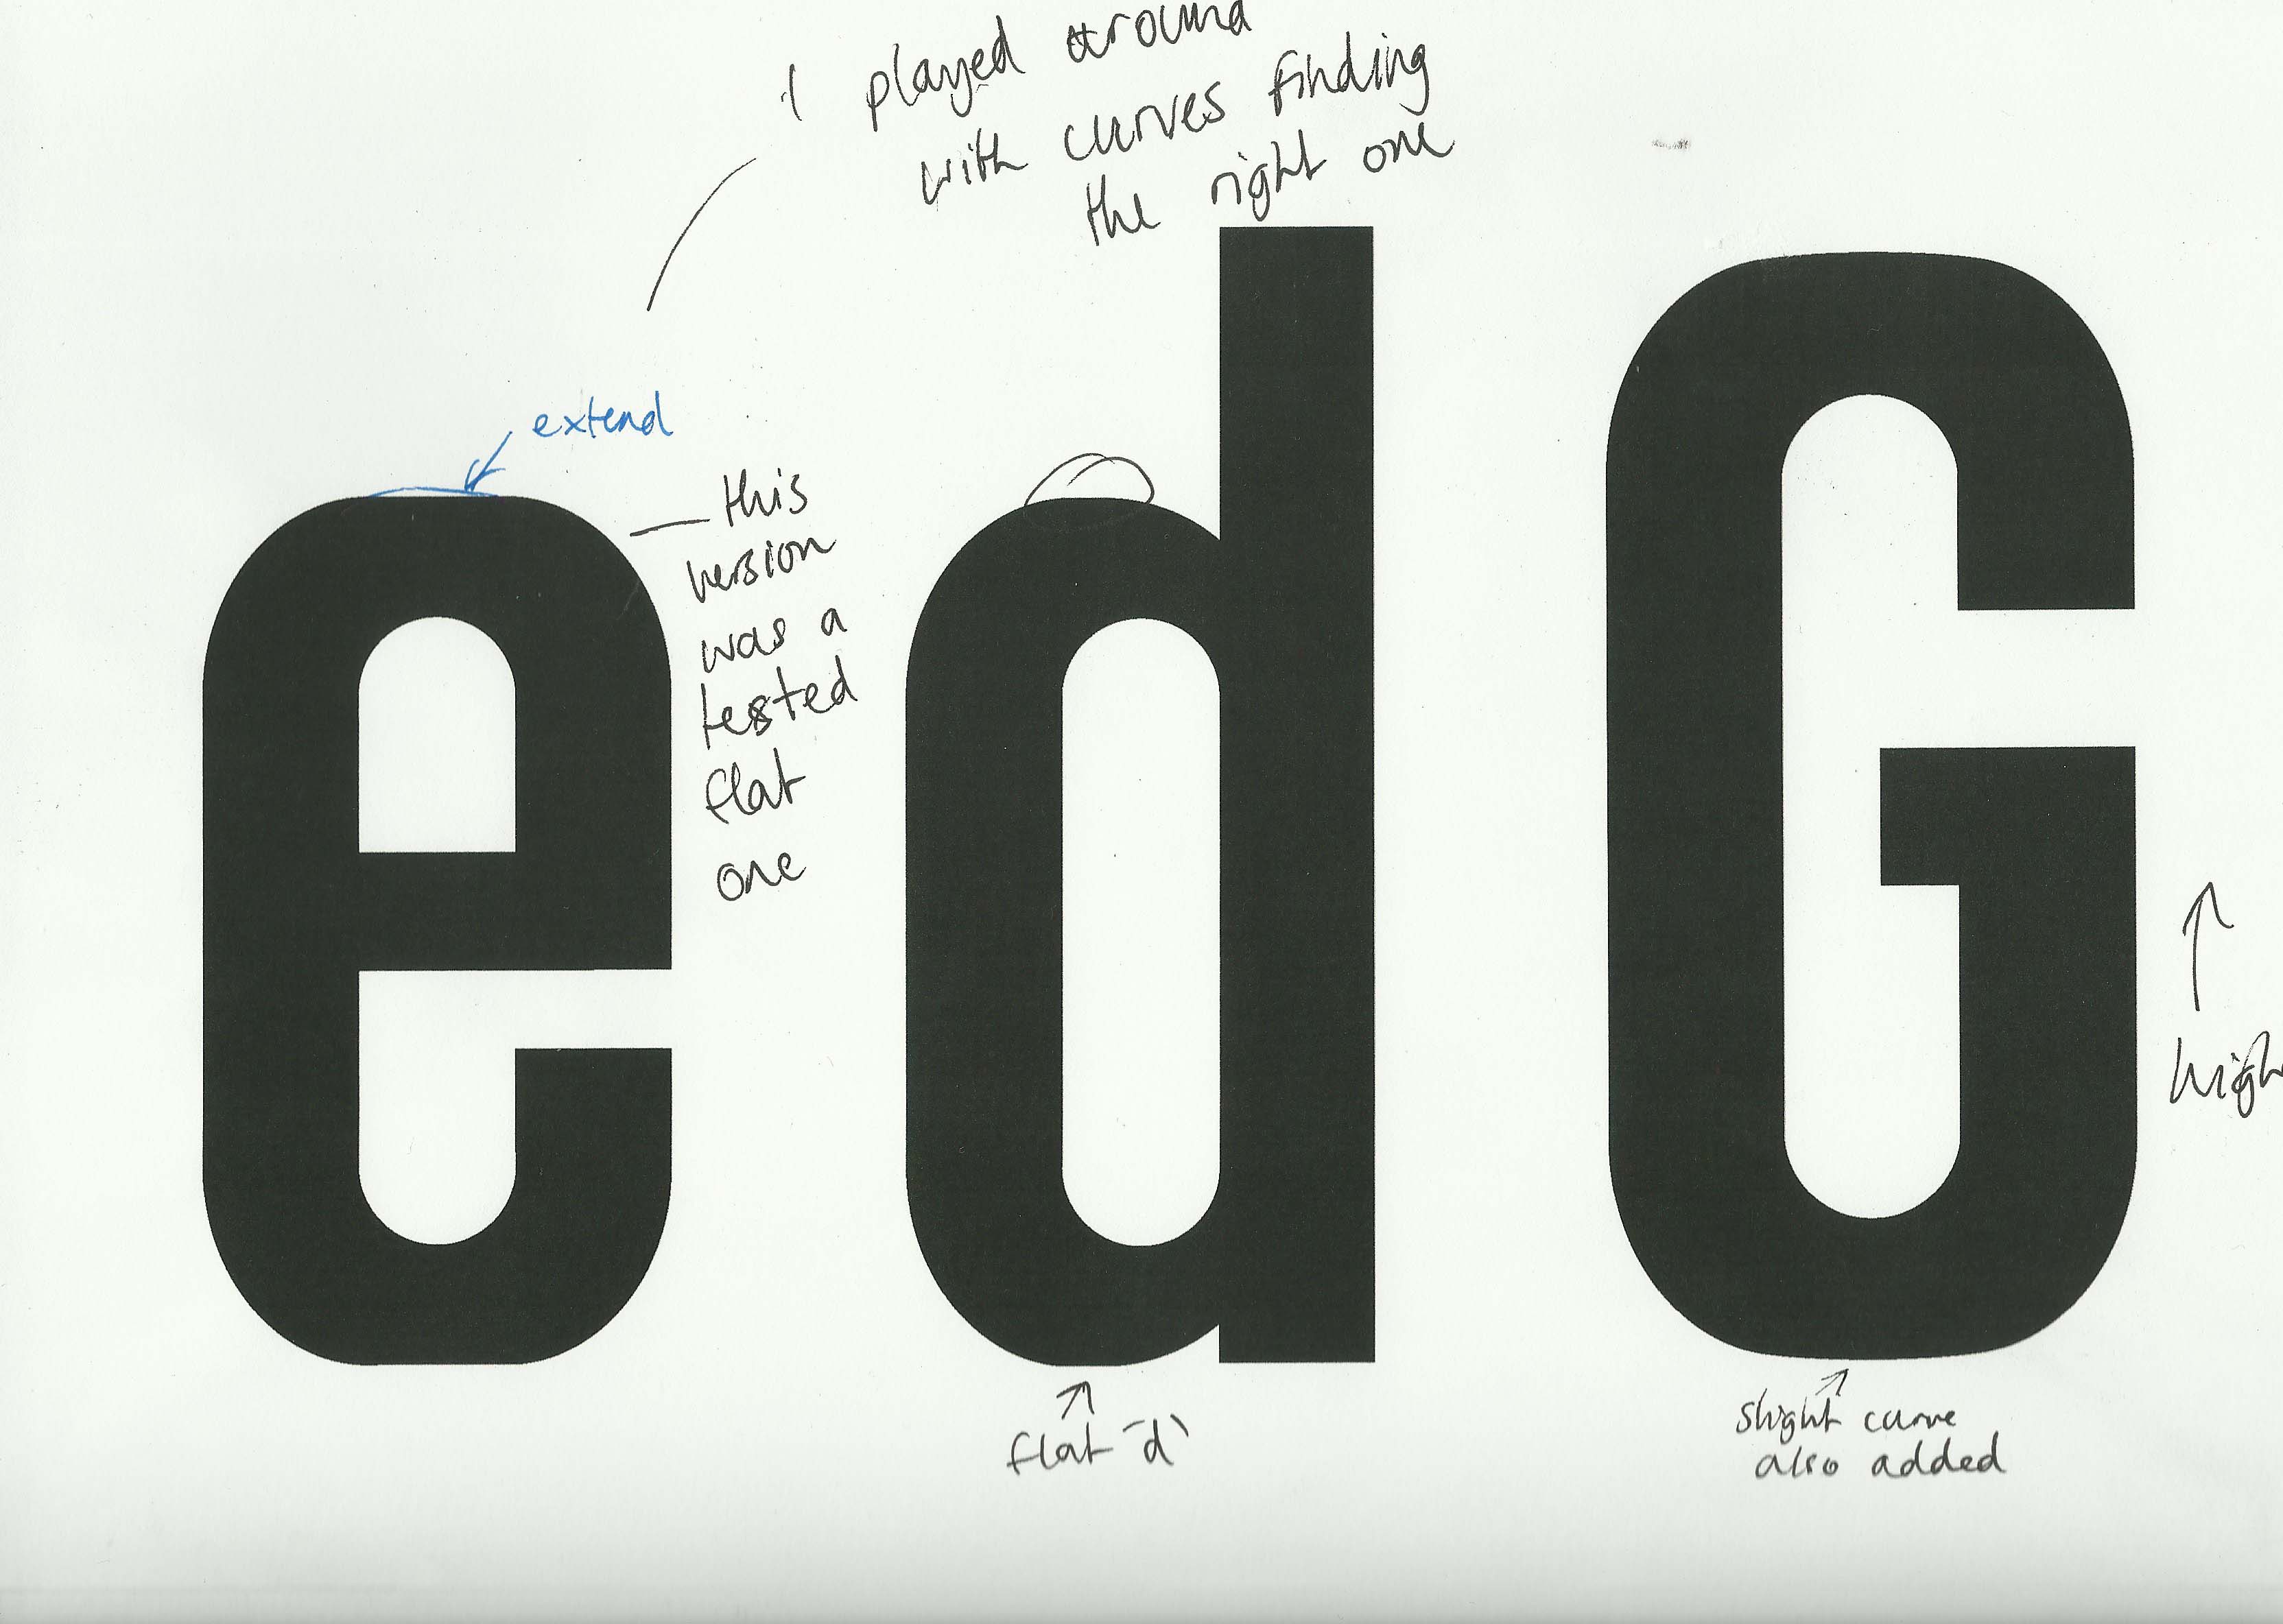 I played around
with curves finding
the right one
extend
this
version
was a
tested
flat
one
e d G
high
flat 'd'
slight curve
also added